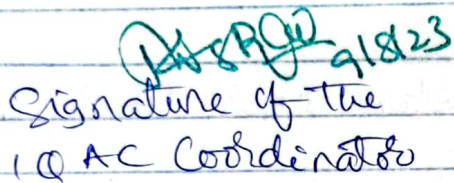 9/8/23
Signature of the
IQAC Coordinator